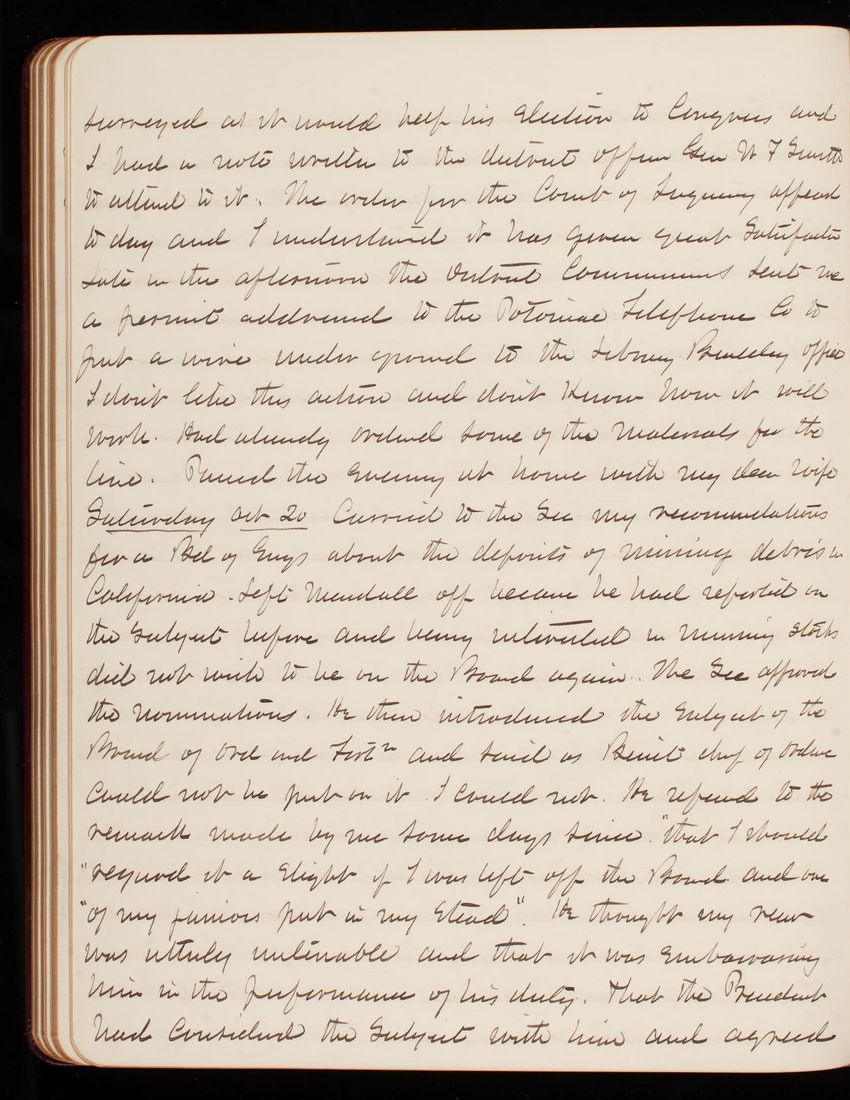 surveyed as it would help his election to Congress and
I had a note written to the district officer Gen W F Smith
to attend to it. The order for the Court of Inquiry appeared
to day and I understand it has given great Satisfaction
Late in the afternoon the District Commissioners sent me
a permit addressed to the Potomac Telephone Co to
put a wire under ground to the Library Building office
I don't like this action and don't know how it will
work. Had already ordered some of the materials for the
line. Passed the evening at home with my dear wife
Saturday Oct 20 Carried to the Sec my recommendations
for a Bd of Engs about the deposits of mining debris in
California. Left Mendall off because he had reported on
the subject before and being interested in mining stocks
did not wish to be on the Board again. The Sec approved
the nominations. He then introduced the subject of the
Board of Ord and Fortn and said as Benét chief of Ordnce
could not be put on it I could not. He refered to the
remark made by me some days since "that I should
"regard it a slight if I was left off the Board and one
"of my juniors put in my stead". He thought my view
was utterly untenable and that it was embarassing
him in the performance of his duty. That the President
had considered the subject with him and agreed